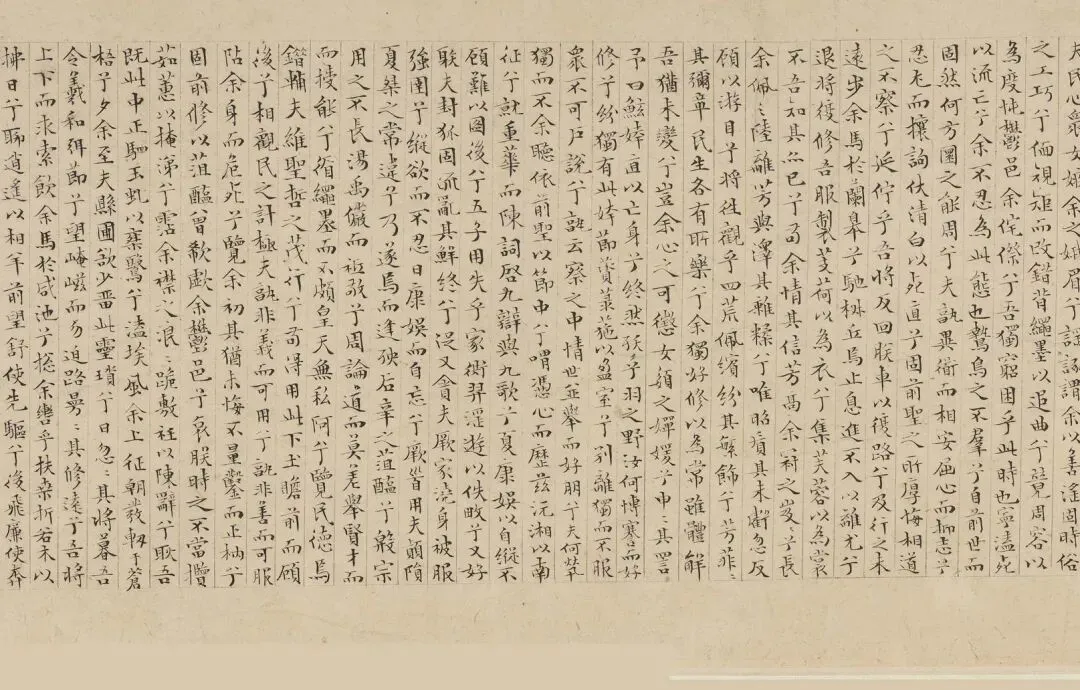 夫民心眾女嫉余之蛾眉兮謠諑謂余以善滛固時俗
之工巧兮偭規矩而改錯背繩墨以追曲兮競周容以
為度忳鬱邑余侘傺兮吾獨窮困乎此時也寧溘死
以流亡兮余不忍為此態也鷙鳥之不羣兮自前世而
固然何方圜之能周兮夫孰異衜而相安屈心而抑志兮
忍尤而攘詬伏清白以死直兮固前聖之所厚悔相道
之不察兮延佇乎吾將反回朕車以復路兮及行之未
遠步余馬於蘭皋兮馳椒丘焉止息進不入以離尤兮
退將復修吾服製芰荷以為衣兮集芙蓉以為裳
不吾知其亦已兮苟余情其信芳高余冠之岌兮長
余佩之陸離芳與澤其雜糅兮唯昭質其未虧忽反
顧以游目兮將往觀乎四荒佩繽紛其繁飾兮芳菲〻
其彌章民生各有所樂兮余獨好修以為常雖體解
吾猶未變兮豈余心之可懲女嬃之嬋媛兮申〻其詈
予曰鮌婞直以亡身兮終然殀乎羽之野汝何博謇而好
修兮紛獨有此姱節薋菉葹以盈室兮判離獨而不服
眾不可戶說兮孰云察之中情世並舉而好朋兮夫何煢
獨而不余聽依前聖以節中兮喟憑心而歷茲沅湘以南
征兮就重華而陳詞啓九辯與九歌兮夏康娛以自縱不
顧難以圖後兮五子用失乎家衖羿滛遊以佚畋兮又好
射夫封狐固流亂其鮮終兮浞又貪夫厥家澆身被服
強圉兮縱欲而不忍日康娛而自忘兮厥首用夫顛隕
夏桀之常違兮乃遂焉而逢殃后辛之菹醢兮殷宗
用之不長湯禹儼而祗敬兮周論道而莫差舉賢才而
而授能兮循繩墨而不頗皇天無私阿兮覽民德焉
錯輔夫維聖哲之茂行兮苟得用此下土瞻前而顧
後兮相觀民之計極夫孰非義而可用兮孰非善而可服
阽余身而危死兮覽余初其猶未悔不量鑿而正枘兮
固前修以菹醢曾歔欷余鬱邑兮哀朕時之不當攬
茹蕙以掩涕兮霑余襟之浪〻跪敷衽以陳辭兮耿吾
既此中正駟玉虬以椉鷖兮溘埃風余上征朝發軔于蒼
梧兮夕余至夫縣圃欲少留此靈瑣兮日忽〻其將暮吾
令羲和弭節兮望崦嵫而勿迫路曼〻其修遠兮吾將
上下而求索飲余馬於咸池兮捴余轡乎扶桑折若木以
拂日兮聊逍遙以相羊前望舒使先驅兮後飛廉使奔